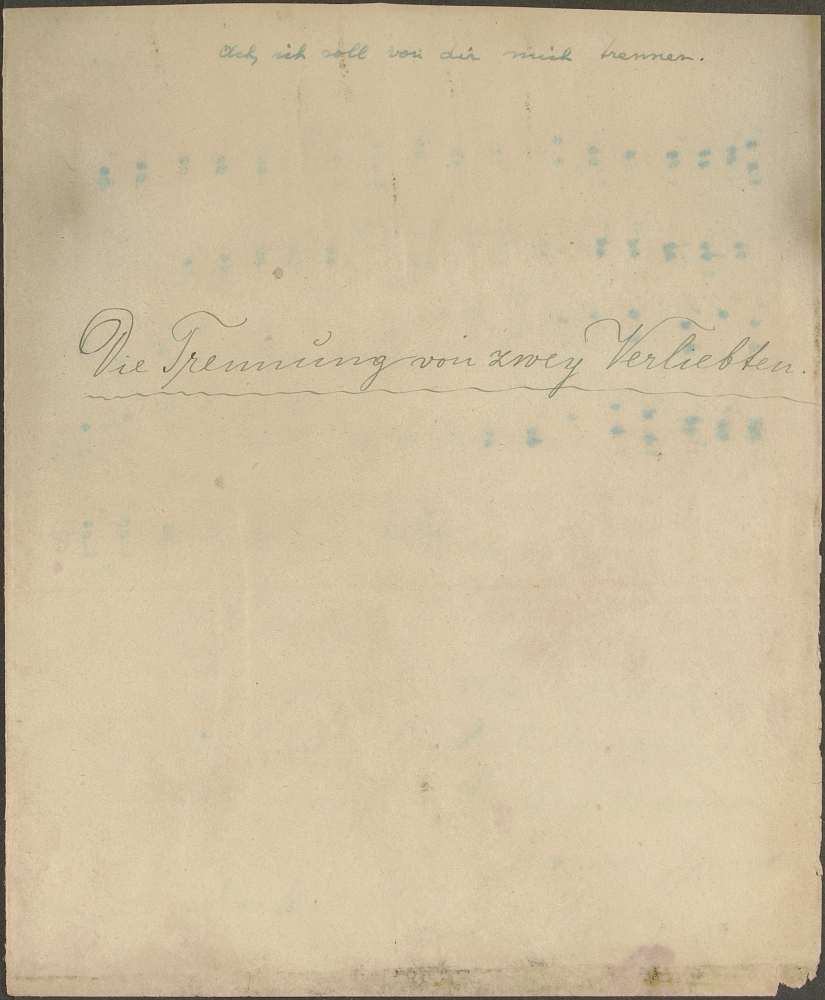 Ach, ich soll von dir mich trennen.
Die Trennung von zwey Verliebten.